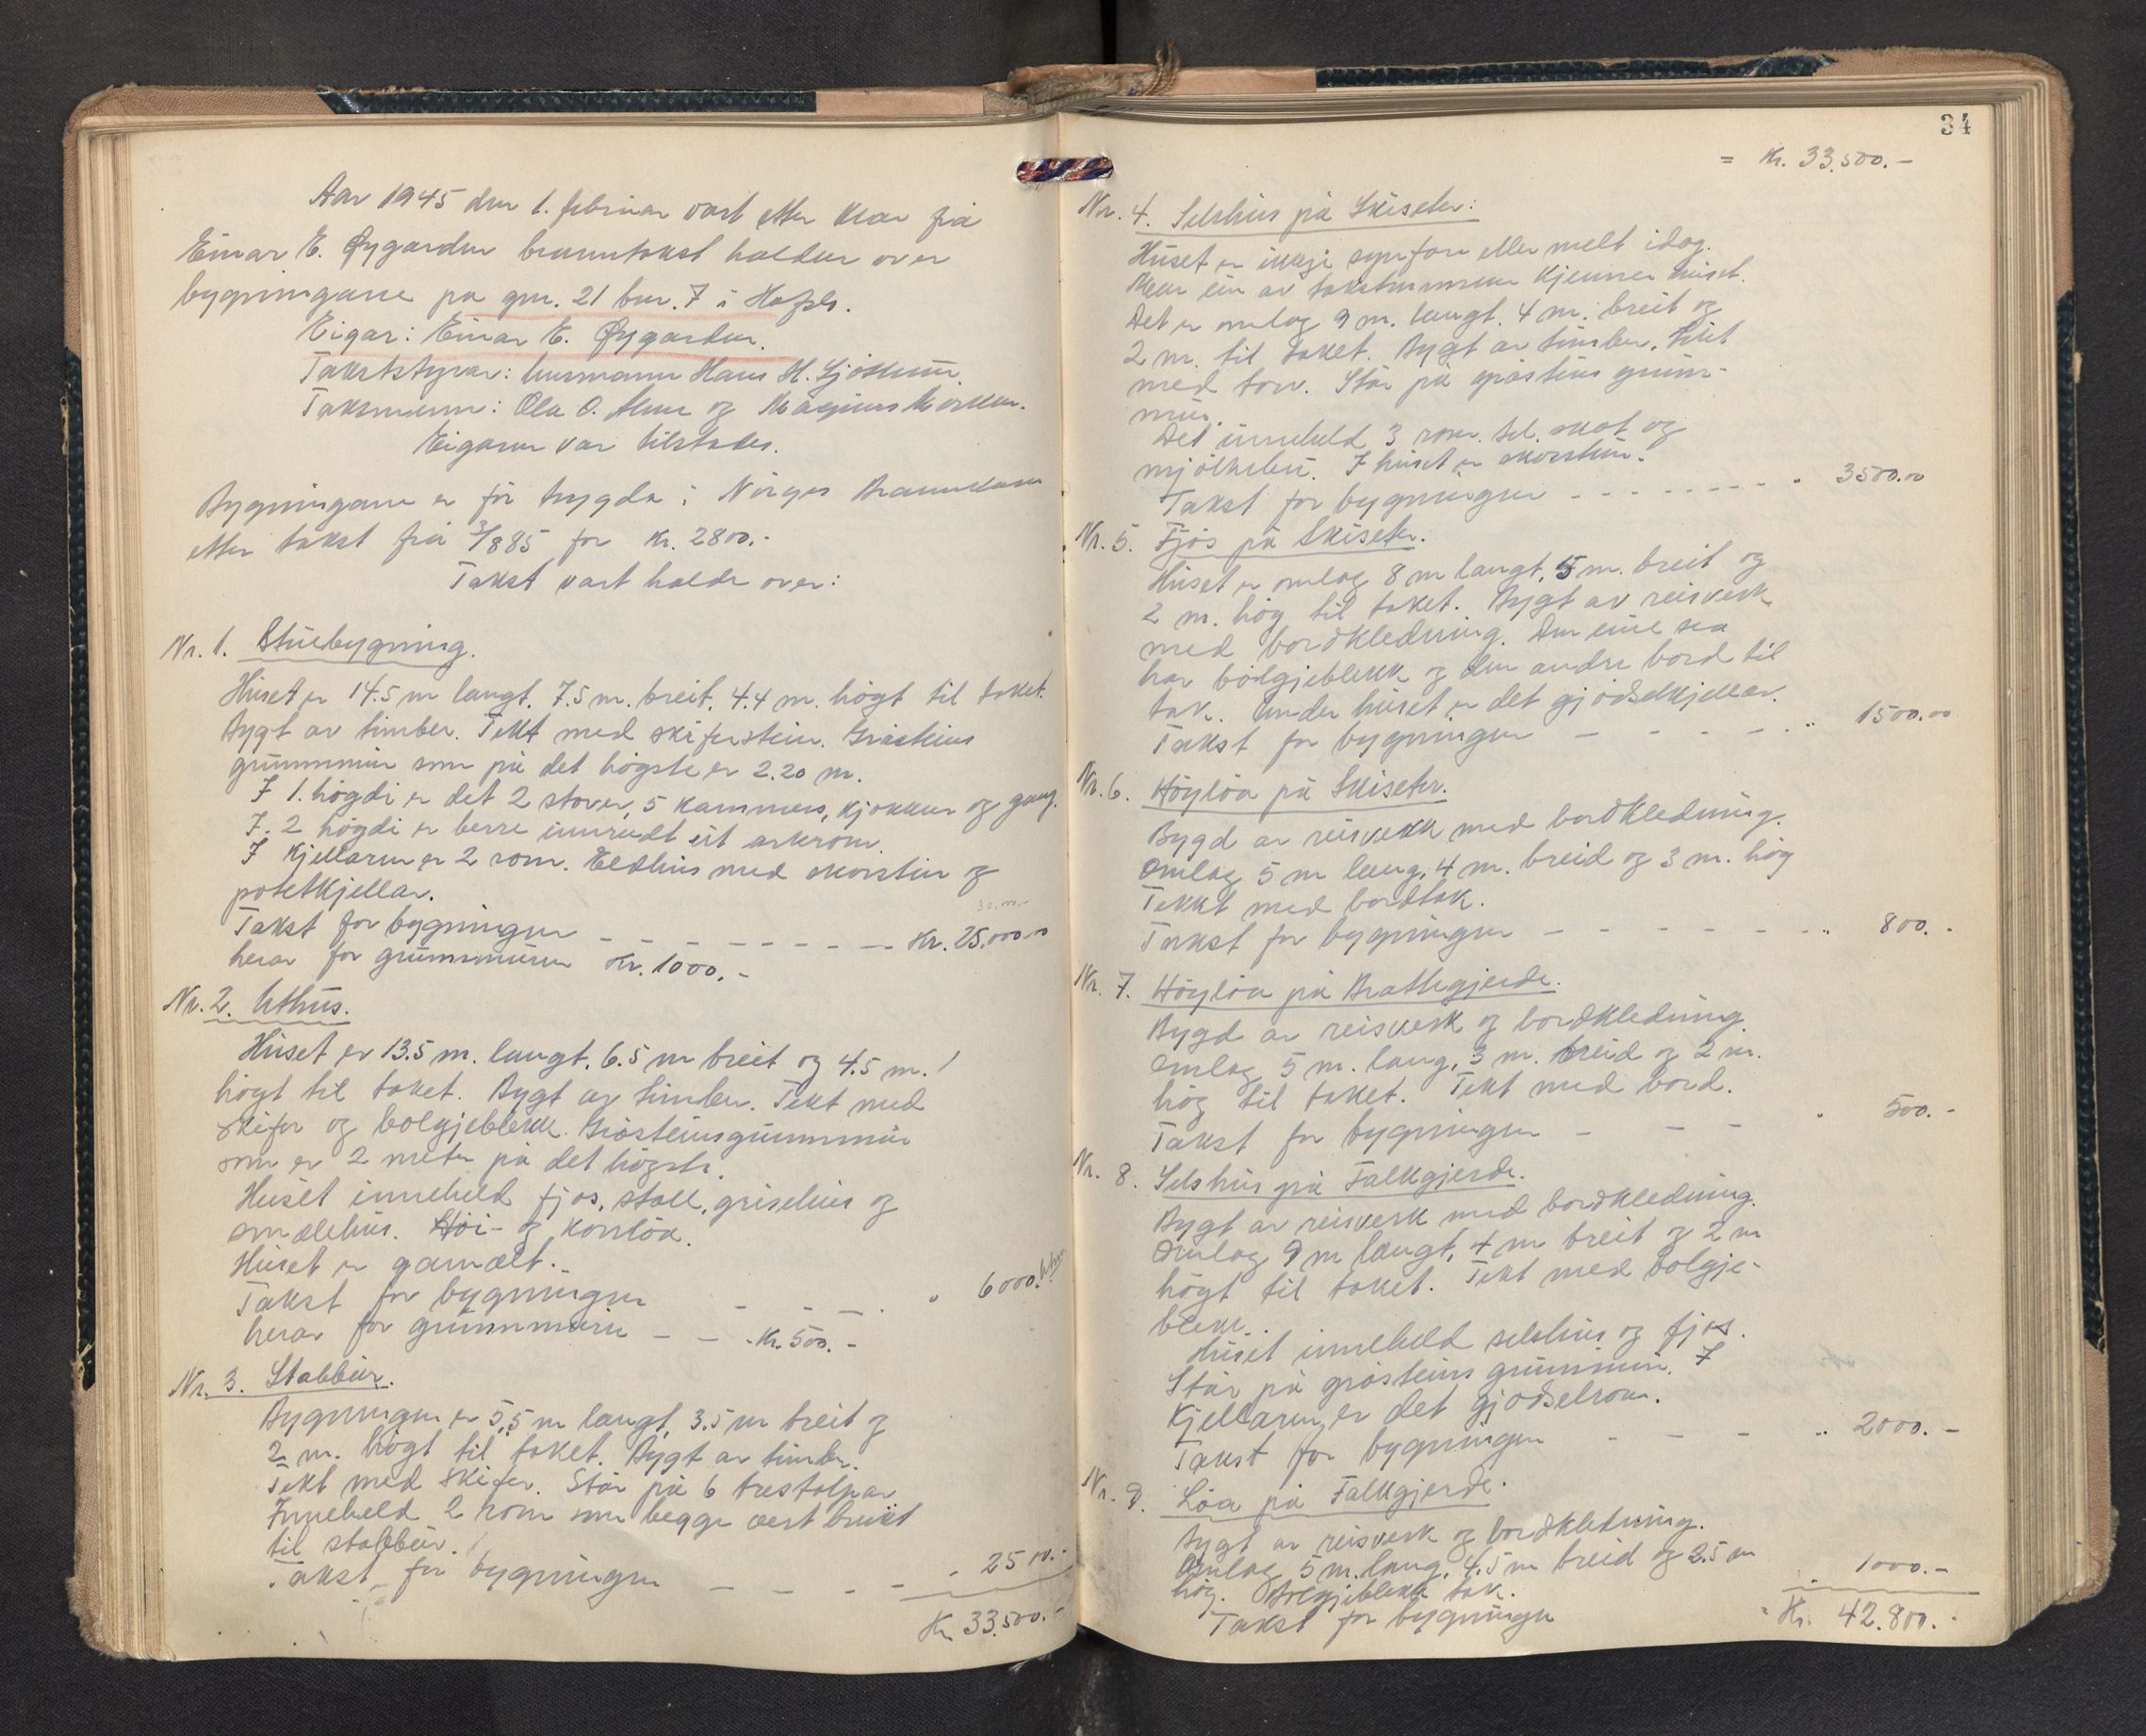 Aar 1945 den 1. februar vart etter krav frå
Einar E. Øygarden branntakst halden over
bygningane på gnr. 21 bnr. 7 i Hafslo.
Eigar: Einar E. Øygarden.
Takststyrar: lensmann Hans H.
Takstmenn: Ola O. og Magnus
Eigaren var tilstades.
Bygningane er før trygda i Norges Brannkasse
etter takst frå 3/8 85 for kr. 2800.-
Takst vart halde over:
Nr. 1. Stuebygning.
Huset er 14.5 m langt, 7.5 m. breit, 4.4 m. högt til taket.
Bygt av timber. Tekt med skiferstein. Gråsteins
grunnmur som på det högste er 2.20 m.
I 1. högdi er det 2 stover, 5 kammers, kjökken og gang.
I. 2 högdi er berre innreidt eit arkrom.
I kjellaren er 2 rom. Eldhus med skorstein og
potetkjellar.
30.000.-
Takst for bygningen - - - - - - - - Kr. 25.000.00
herav for grunnmuren Kr. 1000.-
Nr. 2. Uthus.
Huset er 13.5 m. langt, 6.5 m breit og 4.5 m.
högt til taket. Bygt av timber. Tekt med
skifer og bölgjeblekk. Gråsteinsgrunnmur
som er 2 meter på det högste.
Huset inneheld fjos, stall, grisehus og
smalehus. Höi- og kornlöa.
Huset er gamalt.
Takst for bygningen - - - - " 6000.
herav for grunnmuren - - Kr. 500.-
Nr. 3. Stabbur.
Bygningen er 5,5 m langt, 3.5 m breit og
2 m. högt til taket. Bygt av timber.
Tekt med skifer. Står på 6 trestolpar
Inneheld 2 rom som begge vert brukt
til stabbur.
Takst for bygningen - - - - " 2500.-
Kr. 33.500.-
34
= Kr. 33.500.-
Nr. 4. Selshus på Skiseter:
Huset er ikkje synfare eller melt idag.
Men ein av takstmennene kjenner huset.
Det er omlag 9 m. langt. 4 m. breit og
2 m. til taket. Bygt av timber. Tekt
med torv. Står på gråsteins grunn-
mur.
Det inneheld 3 rom. Sel, skot og
mjölkebu. I huset er skorstein.
Takst for bygningen - - - - - - - - " 3500.00
Nr. 5. Fjös på Skiseter.
Huset er omlag 8 m langt, 5 m. breit og
2 m. hög til taket. Bygt av reisverk
med bordkledning. Den eine sia
har bölgjeblekk og den andre bord til
tak. Under huset er det gjödselkjellar.
Takst for bygningen - - - - - " 1500.00
Nr. 6. Höylöa på Skiseter.
Bygd av reisverk med bordkledning.
Omlag 5 m lang, 4 m. breid og 3 m. hög
Tekkt med bordtak.
Takst for bygningen - - - - - - - " 800.-
Nr. 7. Höylöa på Brattegjerde.
Bygd av reisverk og bordkledning.
Omlag 5 m. lang, 3 m. breid og 2 m.
hög til taket. Tekt med bord.
Takst for bygningen - - - " 500.-
Nr. 8. Selshus på Falkgjerde.
Bygt av reisverk med bordkledning.
Omlag 9 m langt, 4 m breit og 2 m
högt til taket. Tekt med bolgje-
blekk.
Huset inneheld selshus og fjøs.
Står på gråsteins grunnmur. I
kjellaren er det gjödselrom.
Takst for bygningen - - - " 2000.-
Nr. 9. Löa på Falkgjerde.
Bygt av reisverk og bordkledning.
Omlag 5 m. lang, 4.5 m breid og 2.5 m
hög. Bölgjeblekk tak.
Takst for bygningen " 1000.-
= Kr. 42.800.-